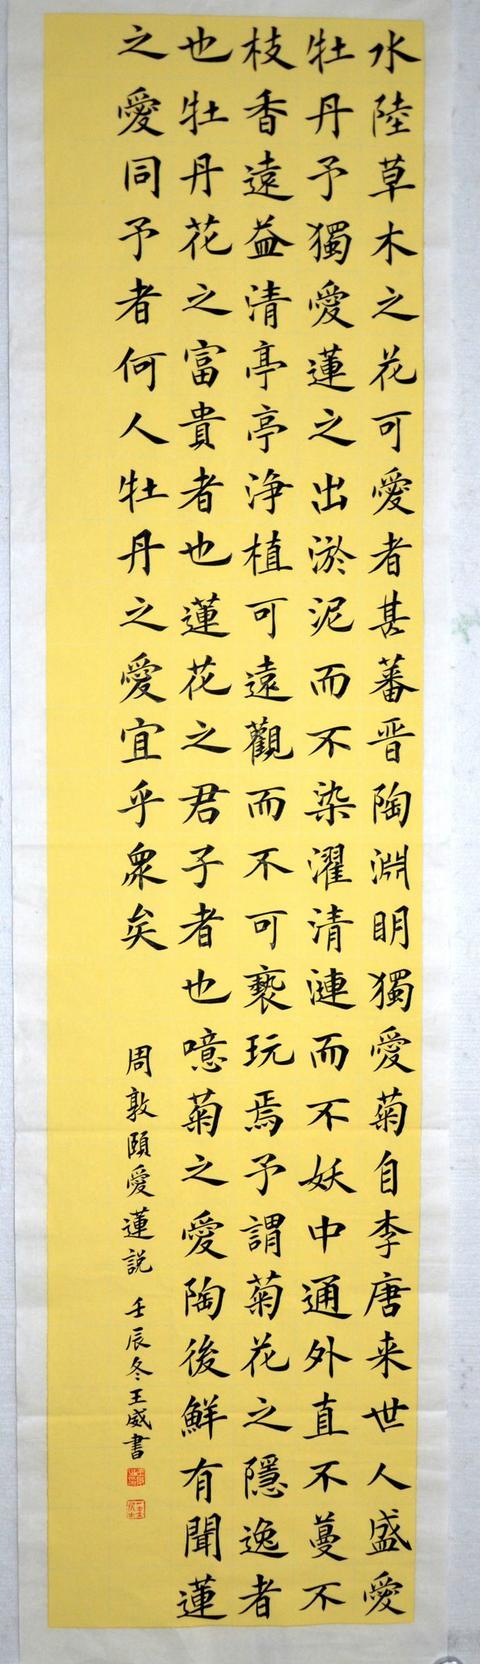 水陸草木之花可愛者甚蕃晋陶淵明獨愛菊自李唐来世人盛愛
牡丹予獨愛蓮之出淤泥而不染濯清漣而不妖中通外直不蔓不
枝香遠益清亭亭浄植可遠觀而不可褻玩焉予謂菊花之隱逸者
也牡丹花之富貴者也蓮花之君子者也噫菊之愛陶後鮮有聞蓮
之愛同予者何人牡丹之愛宜乎衆矣
周敦頤愛蓮説 壬辰冬王威書